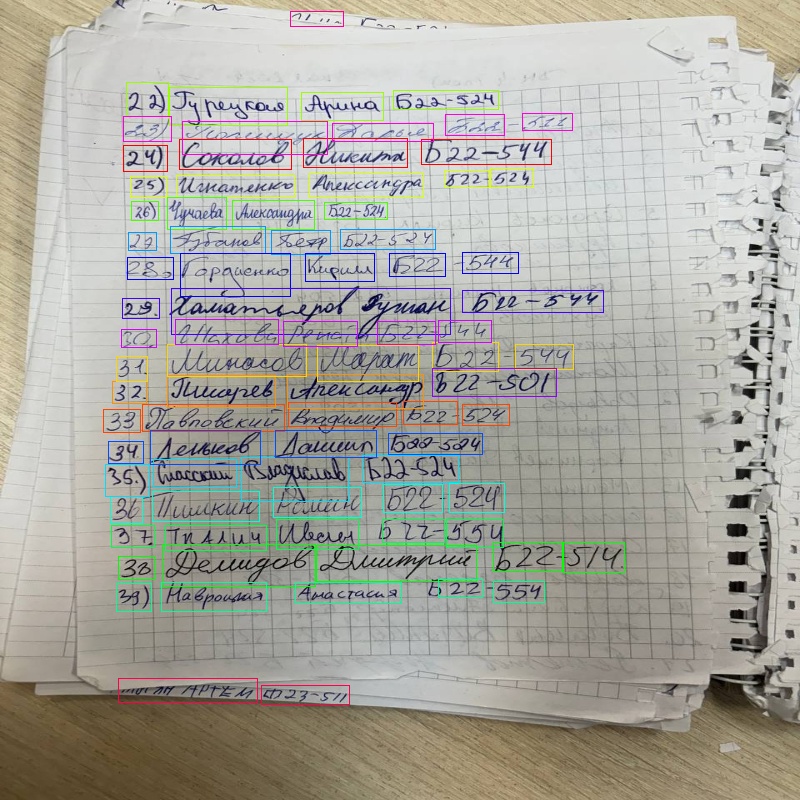 22) Гурецкая Арина Б22-524
23) Дарья Б22-511
24) Соколов Никита Б22-544
25) Игнатенко Александра Б22-524
26) Чучаева Александра Б22-524
27 Губанов Петр Б22-524
28. Гордиенко Кирилл Б22-544
29. Хаматьяров Рушан Б22-544
30. Рената Б22-544
31. Минасов Марат Б22-544
32. Писарев Александр Б22-501
33 Павловский Владимир Б22-524
34 Леньков Даниил Б22-524
35.) Спасский Владислав Б22-524
36 Пишкин Роман Б22-524
37. Ткалич Б22-554
38 Демидов Дмитрий Б22-514.
39) Навроцкая Анастасия Б22-554
АРТЕМ 23-511